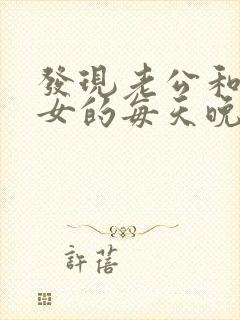 發現老公和
女的每天晚
許蓓